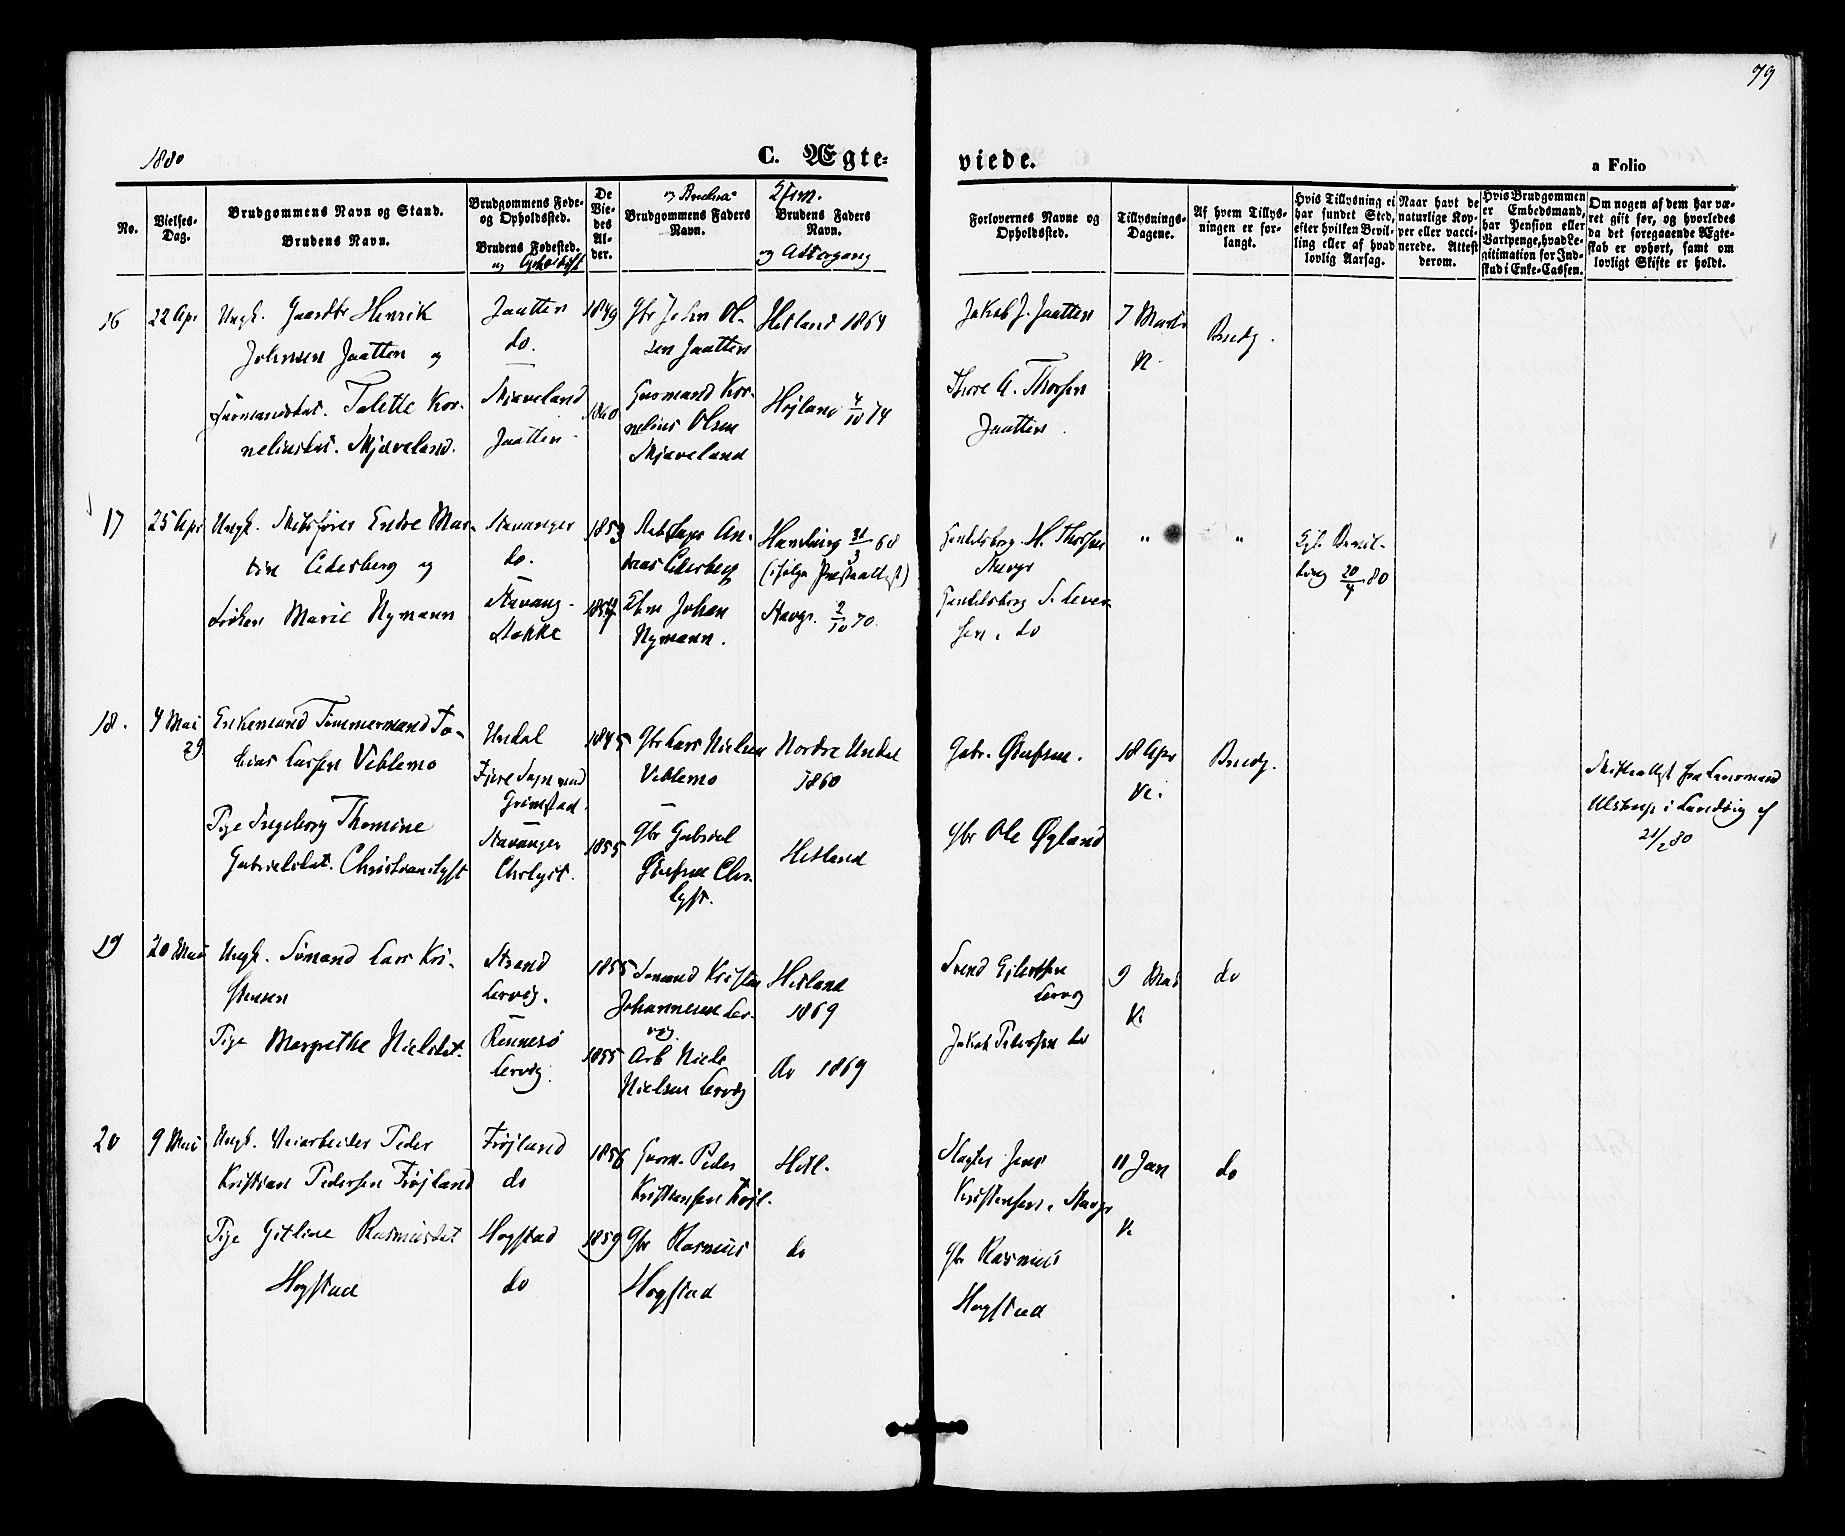 79
1880
C. Ægte-
viede.
a Folio
No.
Vielses-
Dag.
Brudgommens Navn og Stand.
Brudens Navn.
Brudgommens Føde-
og Opholdssted.
Brudens Fødested.
og Opholdsst
De
Vie-
des
Al-
der.
og Brudens
Brudgommens Faders
Navn.
Hjem.
Brudens Faders
Navn.
og Attergang
Forlovernes Navne og
Opholdssted.
Tillysnings-
Dagene.
Af hvem Tillys-
ningen er for-
langt.
Hvis Tillysning ei
har fundet Sted,
efter hvilken Bevil-
ling eller af hvad
lovlig Aarsag.
Naar havt de
naturlige Kop-
per eller vacci-
nerede. Attest
derom.
Hvis Brudgommen
er Embedsmand,
har Pension eller
Vartpenge, hvad Le-
gitimation for Ind-
skud i Enke-Cassen.
Om nogen af dem har væ-
ret gift før, og hvorledes
da det foregaaende Ægte-
skab er ophørt, samt om
lovligt Skifte er holdt.
16
22 Apr
Ungk. Gaardbr Henrik
Johnsen Jaatten og
Talette Kor-
nelius­dat. Skjæveland.
Jaatten
do.
Skjæveland
Jaatten
1849
1860
Gbr John Ol-
sen Jaatten
Gaarmand Kor-
nelius Olsen
Skjæveland
Hetland 1864
Højland 4/10 74
Jakob J. Jaatten
Thore A. Thorsen
Jaatten
7 Marts
K.
Brudg.
17
25 Apr
Ungk. Skibsfører Endre Mar-
tin Cedersberg og
Frøken Marie Nymann
Stavanger
do.
Stavang-
Stokke
1853
1857
An-
dreas Cedersberg
Johan
Nymann.
31/3 68
(ifølge Præsteattest)
Stavgr. 2/10 70
Handelsborg. H. Thorsen
Stavgr
Handelsborg S. Sever-
sen, do
"
"
Kgl. Bevil-
ling 20/4 80
18.
4 Mai
29
Enkemand Tømmermand To-
bias Larsen Veblemo
Pige Ingeborg Thomine
Gabrielsdat. Christianslyst
Undal
Fjære Sogn ved
Grimstad.
Stavanger
Chrlyst.
1845
1855
Gbr Lars Nielsen
Veblemo
Gbr Gabriel
Olufsen Chr.
lyst.
Nordre Undal
1860
Hetland
Gabr. Olufsen.
Gbr Ole Øgland
18 Apr
K.
Brudg.
Skifteattest fra Lensmand
Ulstrup i Landvig af
21/2 80
19
20 Mai
Ungk. Sømand Lars Kri-
stensen
Pige Margrethe Nielsdat.
Strand
Lervig.
Rennesø
Lervig.
1855
1855
Sømand Kristen
Johannesen Ler-
vig
Arb Niels
Nielsen Lervig
Hetland
1869
do 1869
Svend Eilertsen
Lervig
Jakob Pedersen do
9 Mai
K.
do
20
9 Mai
Ungk. Veiarbeider Peder
Kristian Pedersen Frøjland
Pige Gitline Rasmusdat
Hogstad
Frøjland
do
Hogstad
do
1856
1859
Gaarm. Peder
Kristensen Frøjl.
Gbr Rasmus
Hogstad
Hetl.
do
Slagter Jens
Kristensen, Stavgr
Gbr Rasmus
Hogstad
11 Jan
K
do